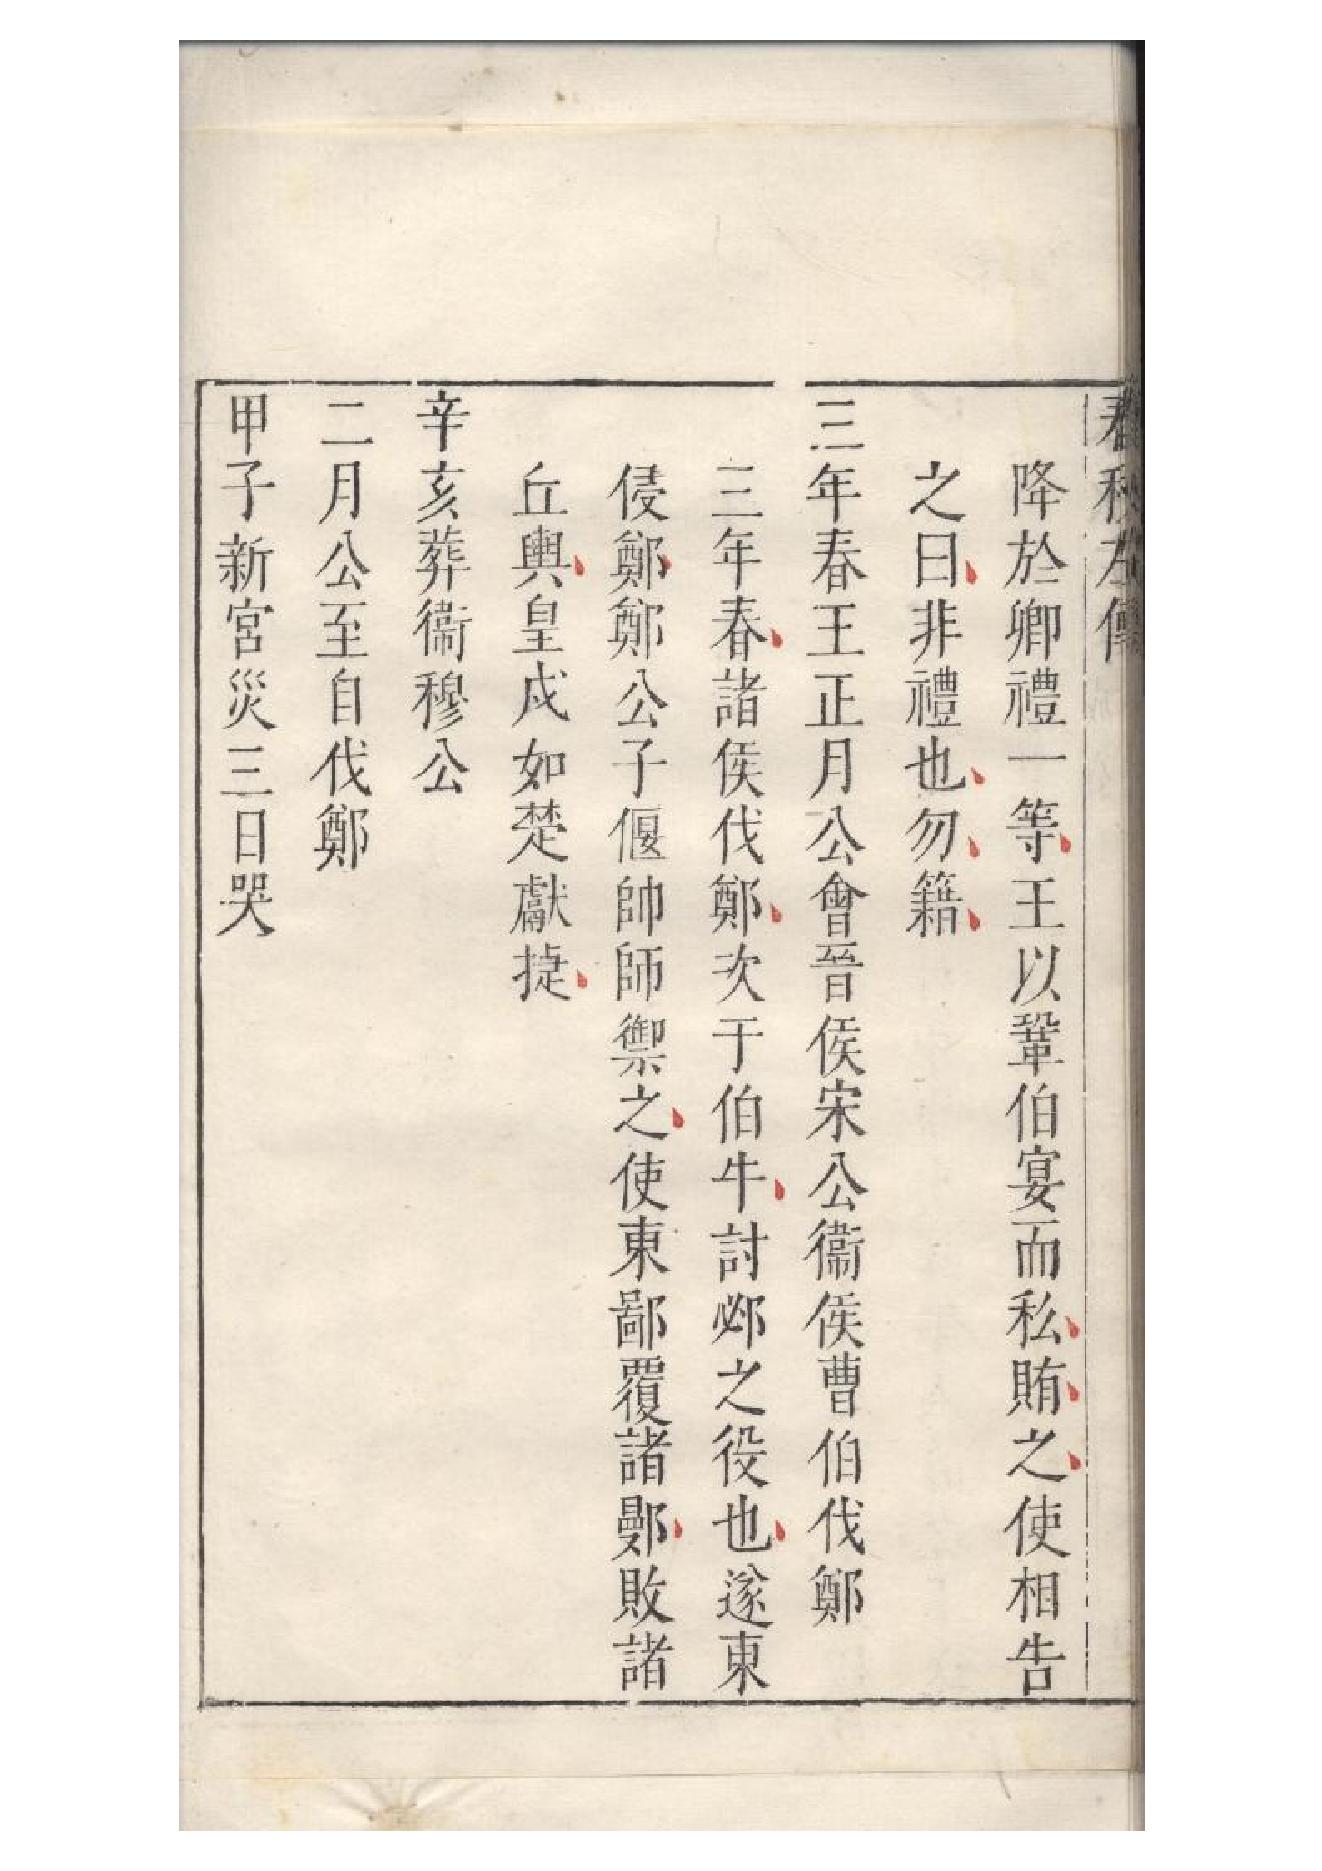 春秋左傳
降於卿禮一等王以鞏伯宴而私賄之使相告
之曰非禮也勿籍
三年春王正月公會晉侯宋公衞侯曹伯伐鄭
三年春諸侯伐鄭次于伯牛討邲之役也遂東
侵鄭鄭公子偃帥師禦之使東鄙覆諸鄤敗諸
丘輿皇戌如楚獻捷
辛亥葬衞穆公
二月公至自伐鄭
甲子新宮災三日哭